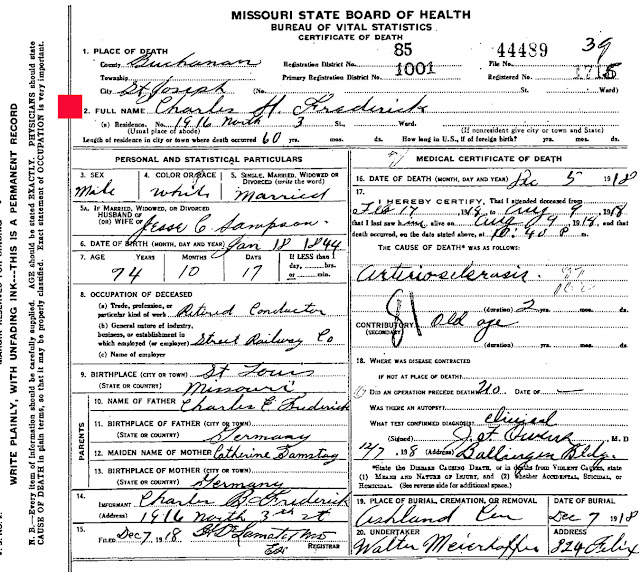 MISSOURI STATE BOARD OF HEALTH
BUREAU OF VITAL STATISTICS
CERTIFICATE OF DEATH
1. PLACE OF DEATH
County Buchanan Registration District No. 85 File No. 44489 39
Township Primary Registration District No. 1001 Registered No.
City St Joseph (No. St. Ward)
2. FULL NAME Charles H. Frederick
(a) Residence. No. 1916 North 3 St. Ward.
(Usual place of abode) (If nonresident give city or town and State)
Length of residence in city or town where death occurred 60 yrs. mos. ds. How long in U.S., if of foreign birth? yrs. mos. ds.
PERSONAL AND STATISTICAL PARTICULARS
3. SEX 4. COLOR OR RACE 5. SINGLE, MARRIED, WIDOWED OR DIVORCED (write the word)
Male White Married
5A. IF MARRIED, WIDOWED, OR DIVORCED
HUSBAND OF
(OR) WIFE OF Jesse C Sampson
6. DATE OF BIRTH (MONTH, DAY AND YEAR) Jan 18 1844
7. AGE YEARS MONTHS DAYS If LESS than 1 day, ......hrs. or ......min.
74 10 17
8. OCCUPATION OF DECEASED
(a) Trade, profession, or particular kind of work Retired Conductor
(b) General nature of industry, business, or establishment in which employed (or employer) Street Railway Co
(c) Name of employer
9. BIRTHPLACE (CITY OR TOWN) St Louis
(STATE OR COUNTRY) Missouri
PARENTS
10. NAME OF FATHER Charles E Frederick
11. BIRTHPLACE OF FATHER (CITY OR TOWN)
(STATE OR COUNTRY) Germany
12. MAIDEN NAME OF MOTHER Catherine Damstag
13. BIRTHPLACE OF MOTHER (CITY OR TOWN)
(STATE OR COUNTRY) Germany
14.
INFORMANT Charles B. Frederick
(Address) 1916 North 3rd st
15.
FILED Dec 7 1918 REGISTRAR
MEDICAL CERTIFICATE OF DEATH
16. DATE OF DEATH (MONTH, DAY AND YEAR) Dec 5 1918
17.
I HEREBY CERTIFY, That I attended deceased from
Feb 17 1918 to Aug 9 1918
that I last saw alive on Aug 9 1918, and that
death occurred, on the date stated above, at 10:40 P m.
THE CAUSE OF DEATH* WAS AS FOLLOWS:
Arteriosclerosis.
81
(duration) 2 yrs. mos. ds.
CONTRIBUTORY Old age
(SECONDARY)
(duration) yrs. mos. ds.
18. WHERE WAS DISEASE CONTRACTED
IF NOT AT PLACE OF DEATH?
DID AN OPERATION PRECEDE DEATH? no DATE OF —
WAS THERE AN AUTOPSY?
WHAT TEST CONFIRMED DIAGNOSIS? Clinical
(Signed) M. D
12/7, 1918 (Address) Ballinger Bldg.
*State the DISEASE CAUSING DEATH, or in deaths from VIOLENT CAUSES, state
(1) MEANS AND NATURE OF INJURY, and (2) whether ACCIDENTAL, SUICIDAL, or
HOMICIDAL. (See reverse side for additional space.)
19. PLACE OF BURIAL, CREMATION, OR REMOVAL DATE OF BURIAL
Ashland Cem Dec 7 1918
20. UNDERTAKER ADDRESS
Walter Meierhoffer 824 Felix
WRITE PLAINLY, WITH UNFADING INK---THIS IS A PERMANENT RECORD
N. B.—Every item of information should be carefully supplied. AGE should be stated EXACTLY. PHYSICIANS should state
CAUSE OF DEATH in plain terms, so that it may be properly classified. Exact statement of OCCUPATION is very important.